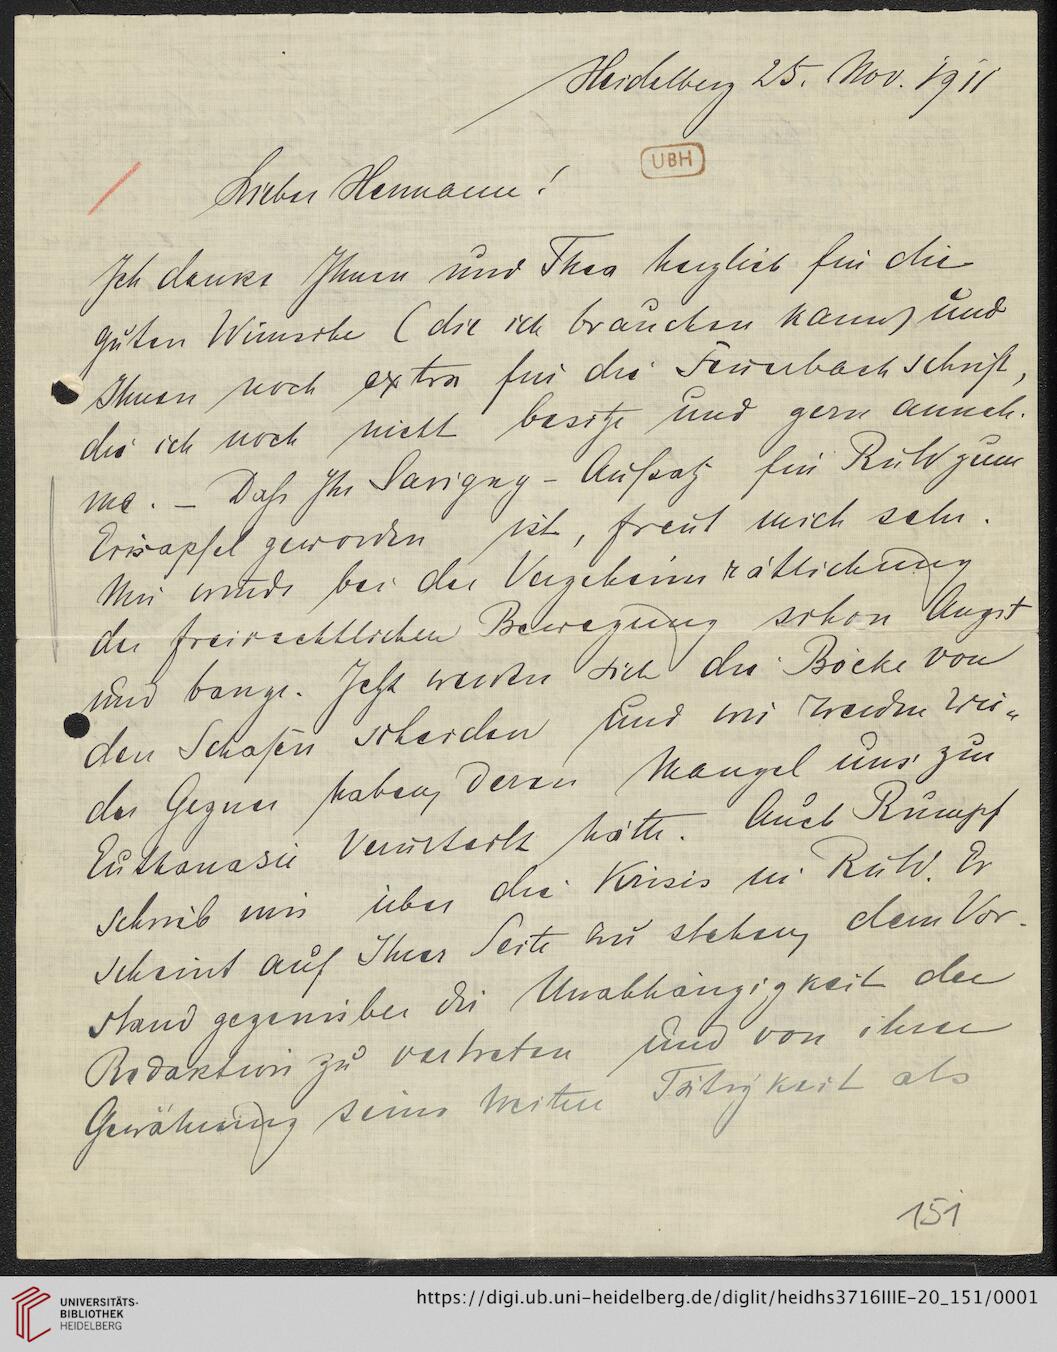 Heidelberg 25. Nov. 1911
UBH
Lieber Hermann!
Ich danke Ihnen und Thea herzlich für die
guten Wünsche (die ich brauchen kann) und
Ihnen noch extra für die Feuerbachschrift,
die ich noch nicht besitze und gern anneh-
me. – Daß Ihr Savigny-Aufsatz für RuW zum
Erisapfel geworden ist, freut mich sehr.
Mir wurde bei der Vergeheimrätlichung
der freirechtlichen Bewegung schon Angst
und bange. Jetzt werden sich die Böcke von
den Schafen scheiden und wir werden wie-
der Gegner haben, deren Mangel uns zur
Euthanasie verurteilt hätte. Auch Rumpf
schrieb mir über die Krisis in RuW. Er
scheint auf Ihrer Seite zu stehen, dem Vor-
stand gegenüber die Unabhängigkeit der
Redaktion zu vertreten und von ihrer
Gewährung seine weitere Tätigkeit als
151
UNIVERSITÄTS-
BIBLIOTHEK
HEIDELBERG
https://digi.ub.uni-heidelberg.de/diglit/heidhs3716IIIE-20_151/0001